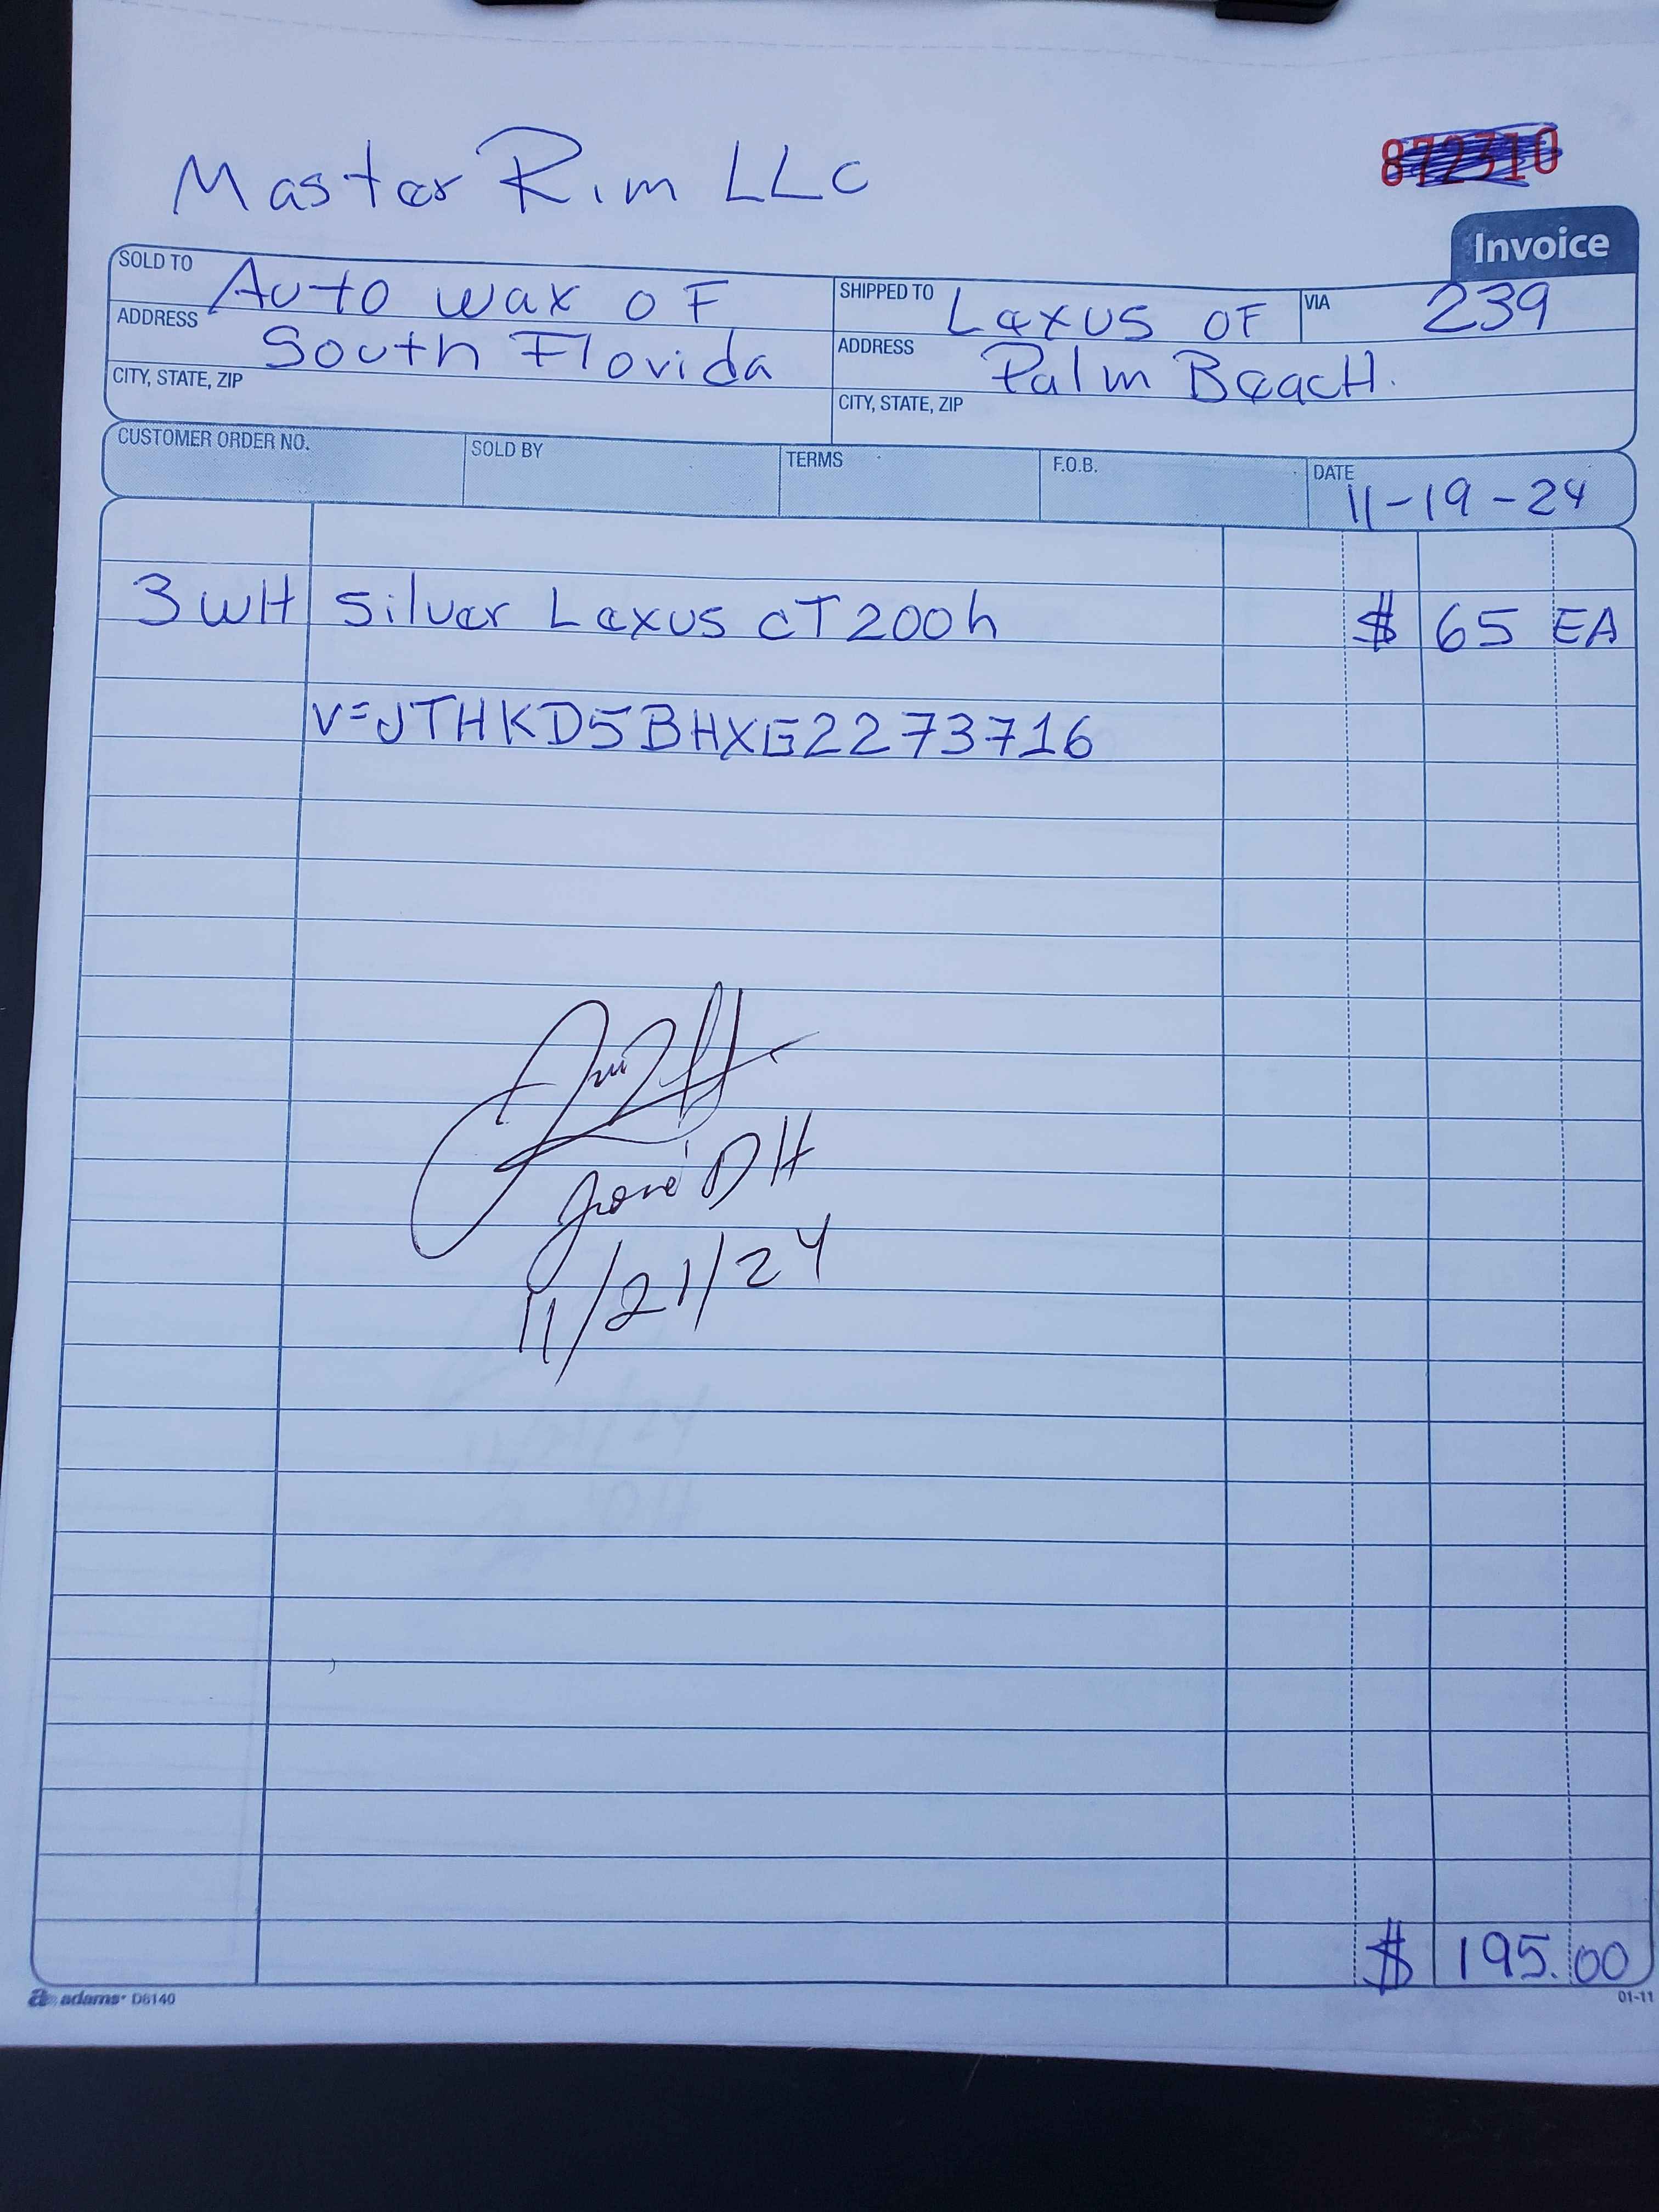 Master Rim LLC
872310
Invoice
SOLD TO Auto wax OF
ADDRESS South Florida
CITY, STATE, ZIP
SHIPPED TO Lexus OF
VIA 239
ADDRESS Palm BeacH.
CITY, STATE, ZIP
CUSTOMER ORDER NO. SOLD BY TERMS F.O.B. DATE 11-19-24
3 WH silver Lexus cT200h $ 65 EA
V=JTHKD5BHXG2273716
José DH
11/21/24
$ 195.00
adams D6140
01-11